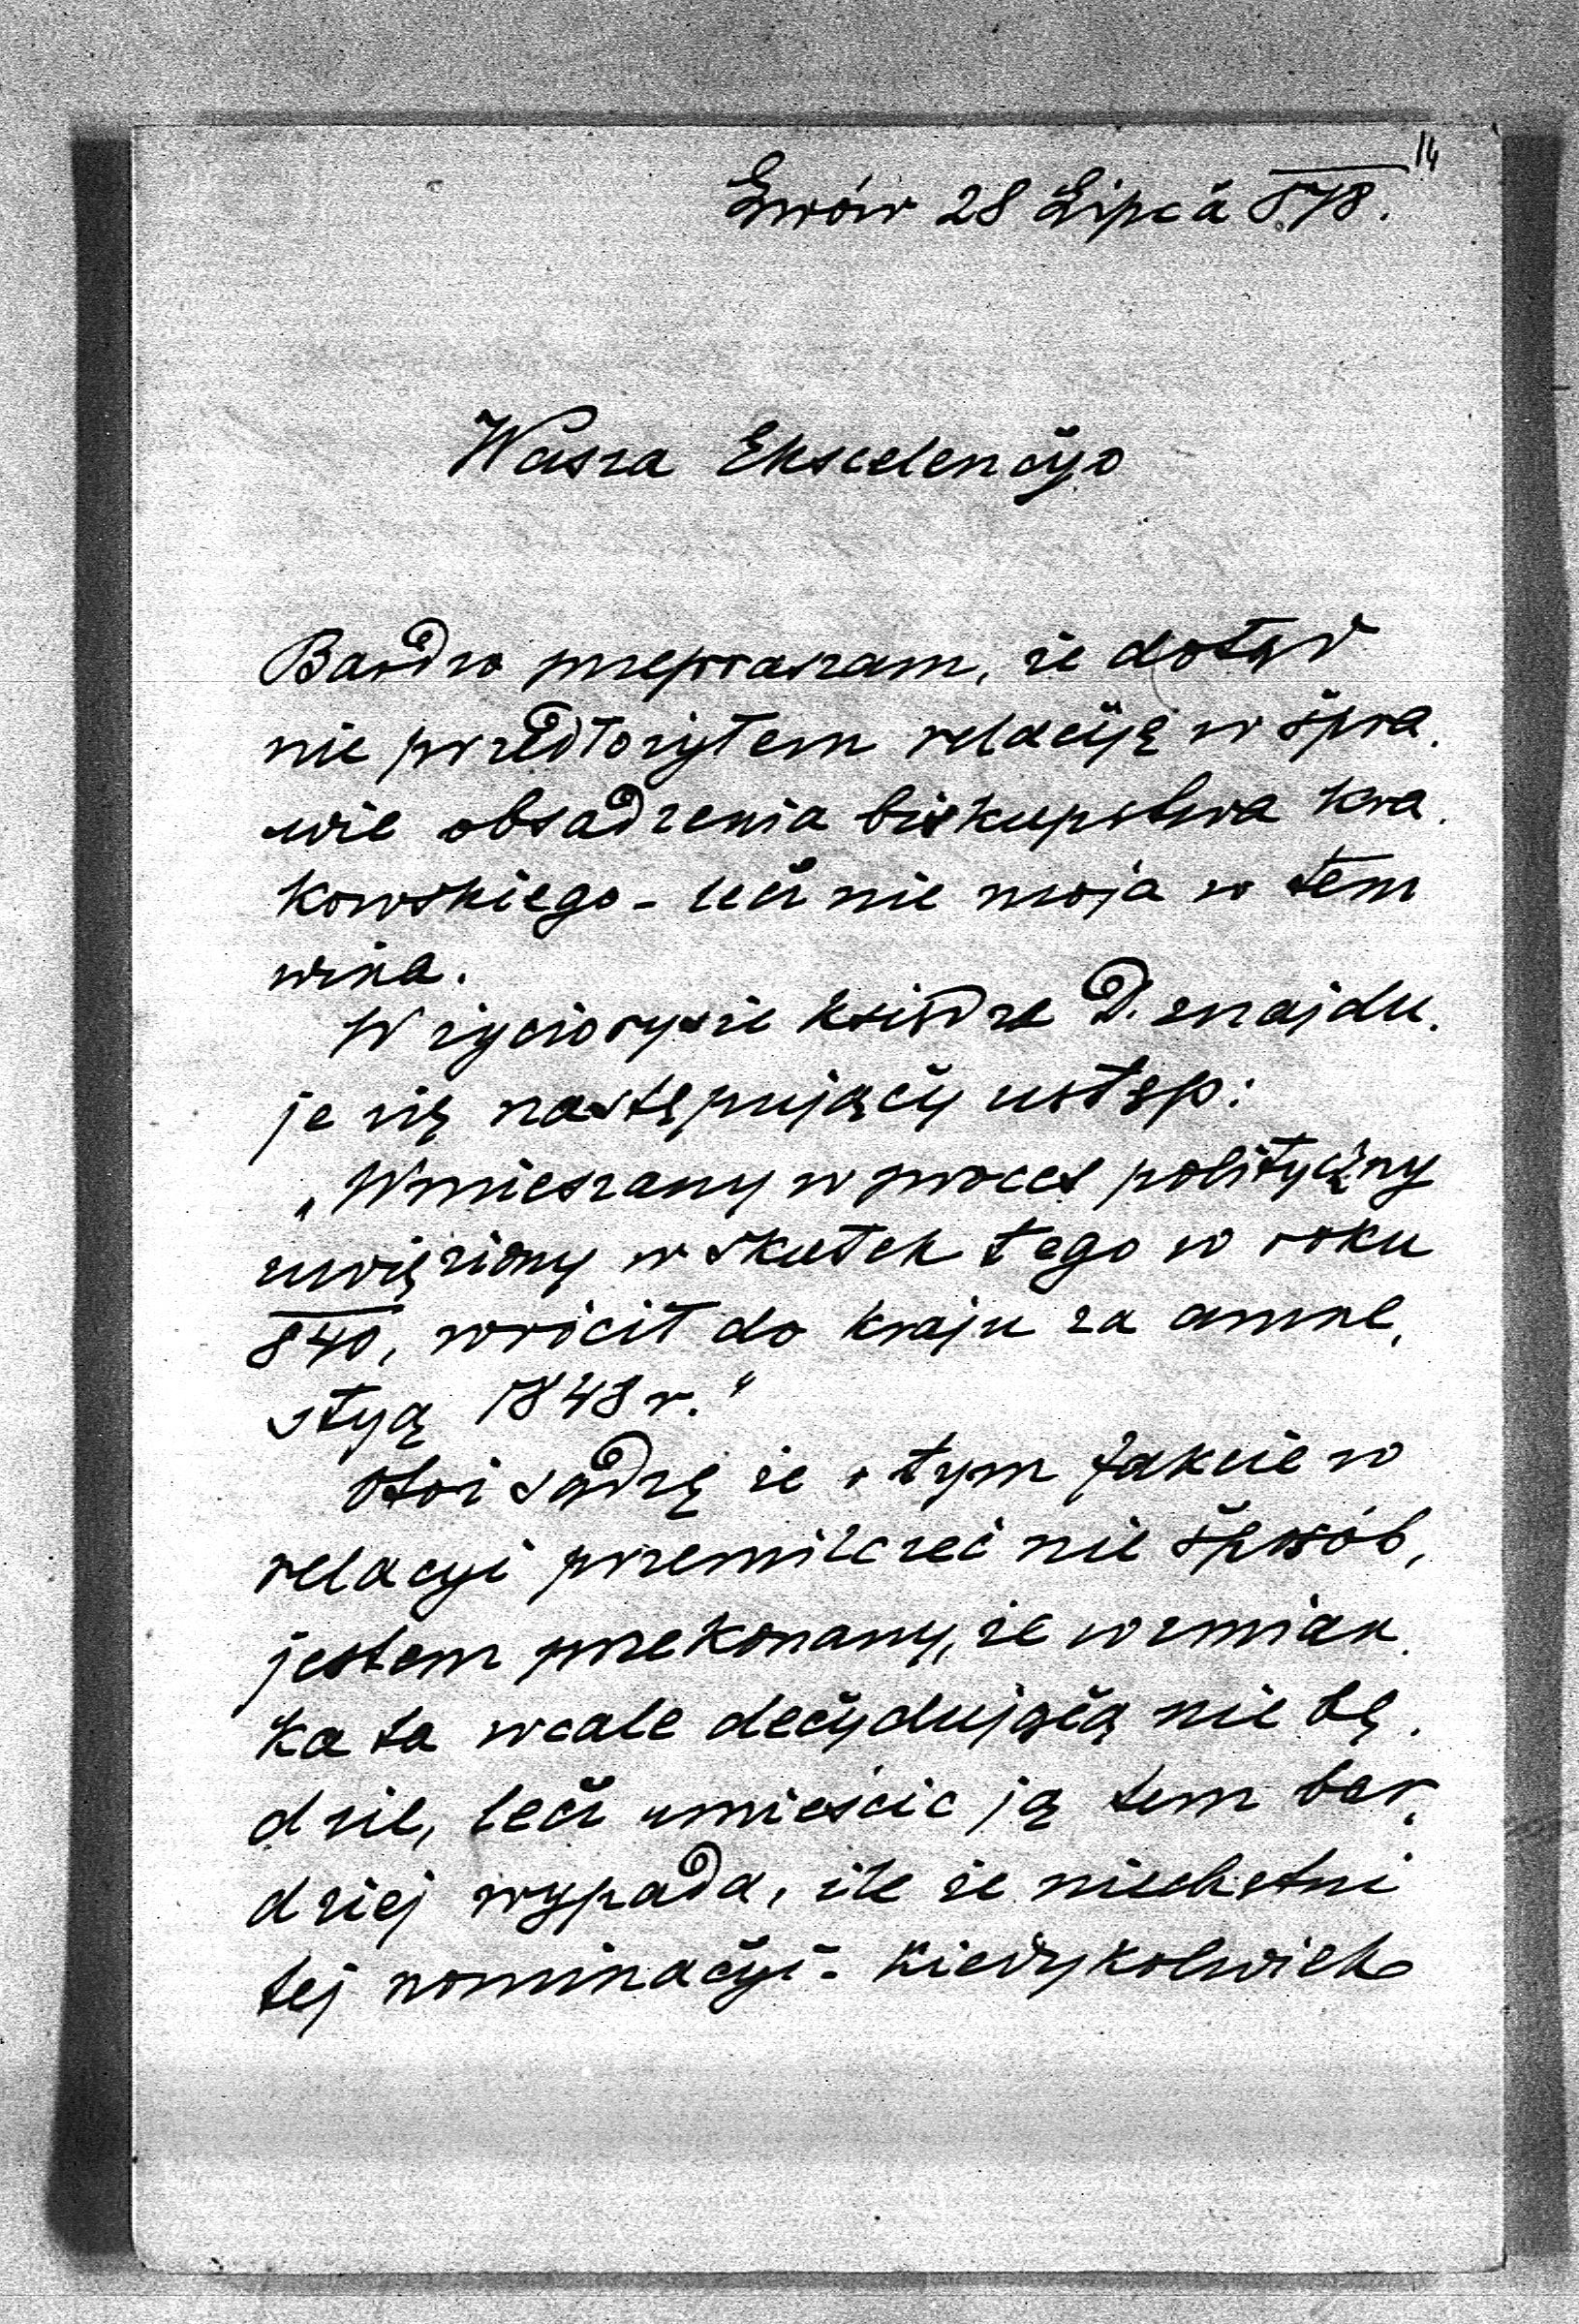 14
Lwów 28 Lipca 878.
Wasza Ekscelencyo
Bardzo przepraszam, że dotąd
nie przedłożyłem relacyję w spra-
wie obsadzenia biskupstwa kra-
kowskiego - lecz nie moja w tem
wina.
W życiorysie księdza D. znajdu-
je się następujący ustęp:
„Wmieszany w proces polityczny
uwięziony w skutek tego w roku
840, wrócił do kraju za amne-
styą 1848 r."
Otoż sądzę że o tym fakcie w
relacyi przemilczeć nie sposób,
jestem przekonany, że wzmian-
ka ta wcale decydującą nie bę-
dzie, lecz umieścić ją tem bar-
dziej wypada, ile że niechętni
tej nominacyi - kiedykolwiek